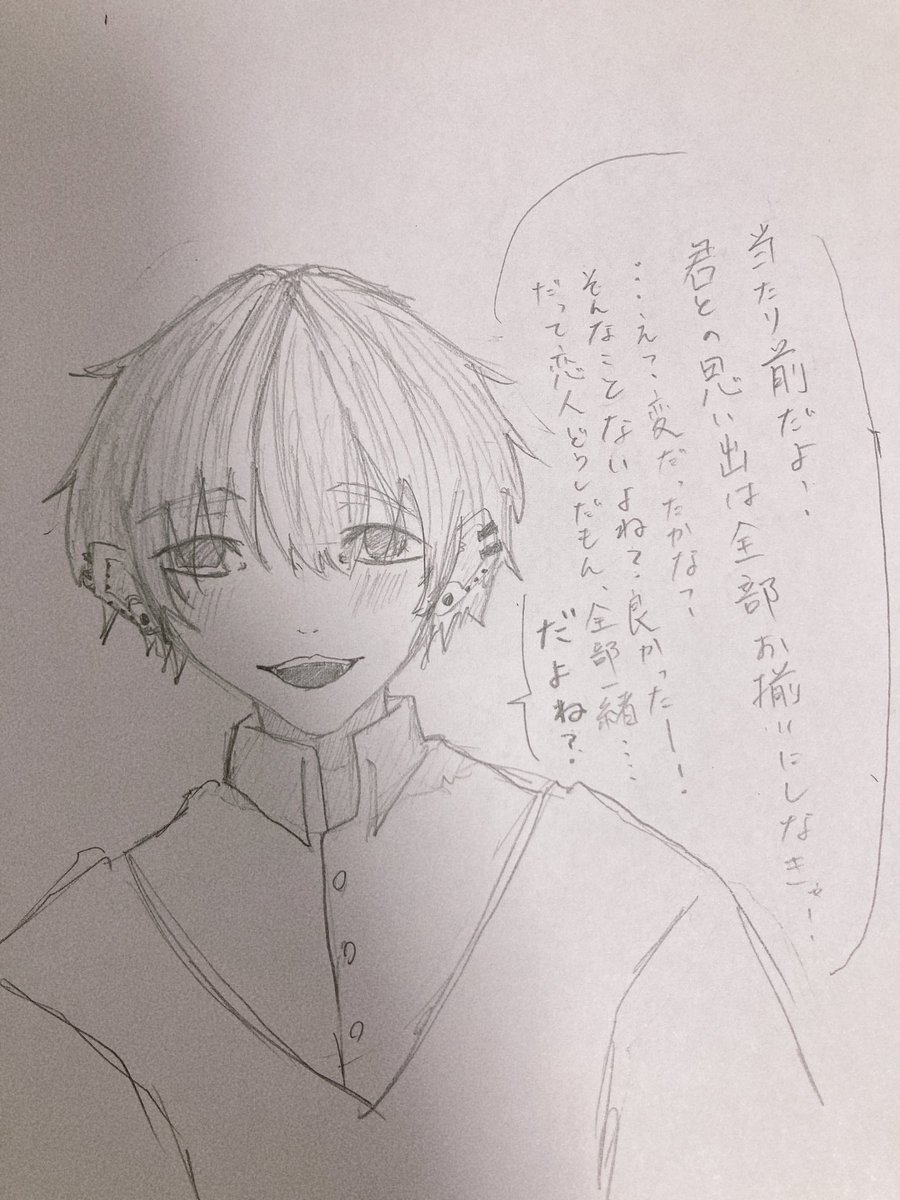 当たり前だよ、
君との思い出は全部お揃いにしなきゃ!
...えっ、変だったかなっ?
そんなことないよねて、良かったー!
だって恋人どうしだもん、全部一緒....
だよね?